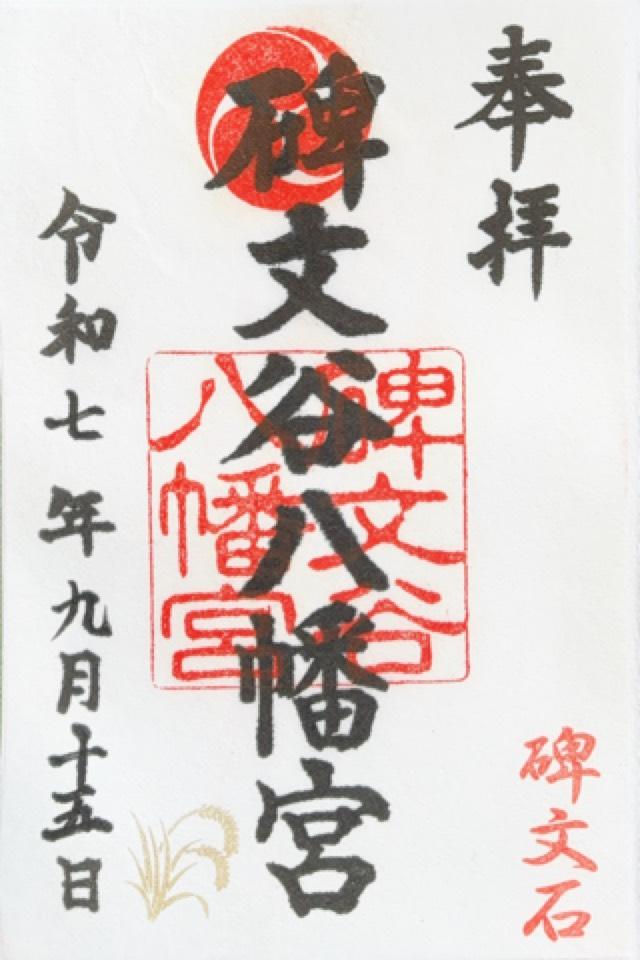 奉拝
碑文谷八幡宮
碑文谷
八幡宮
令和七年九月十五日
碑文石